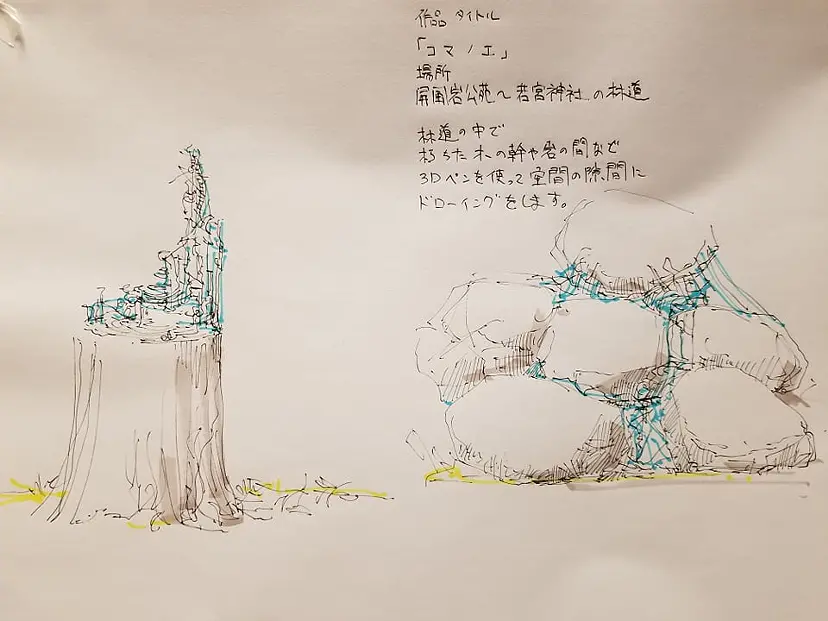 作品 タイトル
「コマノエ」
場所
屏風岩公苑～若宮神社の林道
林道の中で
朽ちた木の幹や岩の間など
3Dペンを使って空間の隙間に
ドローイングをします。